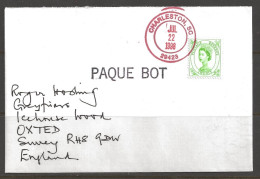 CHARLESTON, SC
JUL
22
1998
29423
PAQUE BOT
Roger Hosking
Greyfriars
Icehouse Wood
OXTED
Surrey RH8 9DW
England